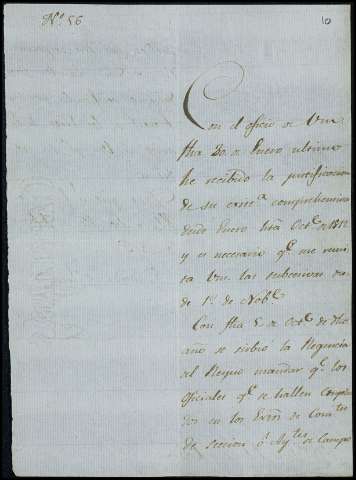 Nº 56
10
Con el oficio de Vm.
fha 30. de Enero ultimo
he recibido la justificacion
de su exist.ª comprehensiva
desde Enero hta Oct.e de 1812
y es necesario q.e me remi
ta Vm. las subcesivas de
de 1º de Nob.e
Con fha 5 de Oct.e de dho
año se sirbió la Regencia
del Reyno mandar q.e los
oficiales q.e se hallen emplea
dos en los Exttos de
de Seccion ó Ay.tes de Campo